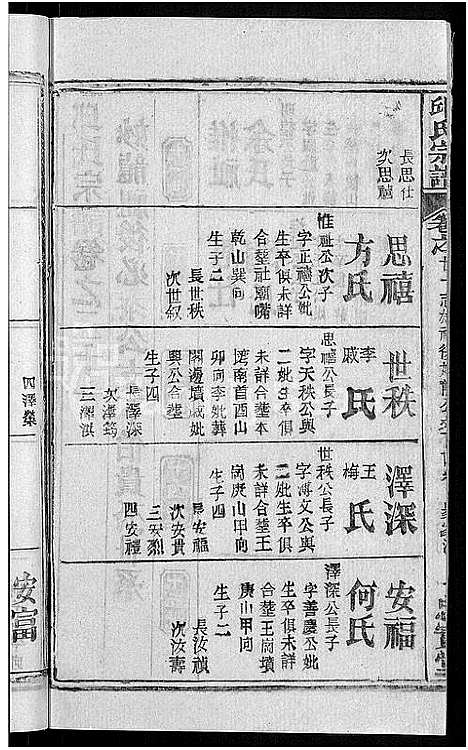 邱氏宗譜
長思仕
次思禧
思禧
方氏
惟祉公次子
字正禧公妣
生卒俱未詳
合塟社廟嘴
乾山巽向
生子二
長世秩
次世叙
世秩
李氏
戚氏
思禧公長子
字天秩公與
二妣生卒俱
未詳合塟本
塆南首酉山
卯向李妣葬
開邊墳戚妣
與公合塟
生子四
長澤深
次澤筠
三澤淇
四澤燊
澤深
王氏
梅氏
世秩公長子
字溥文公與
二妣生卒俱
未詳合塟王
岡庚山甲向
生子四
長安福
次安貴
三安烈
四安禮
安福
何氏
澤深公長子
字善慶公妣
生卒俱未詳
合塟王崗墳
庚山甲向
生子二
長汝禎
次汝壽
安富